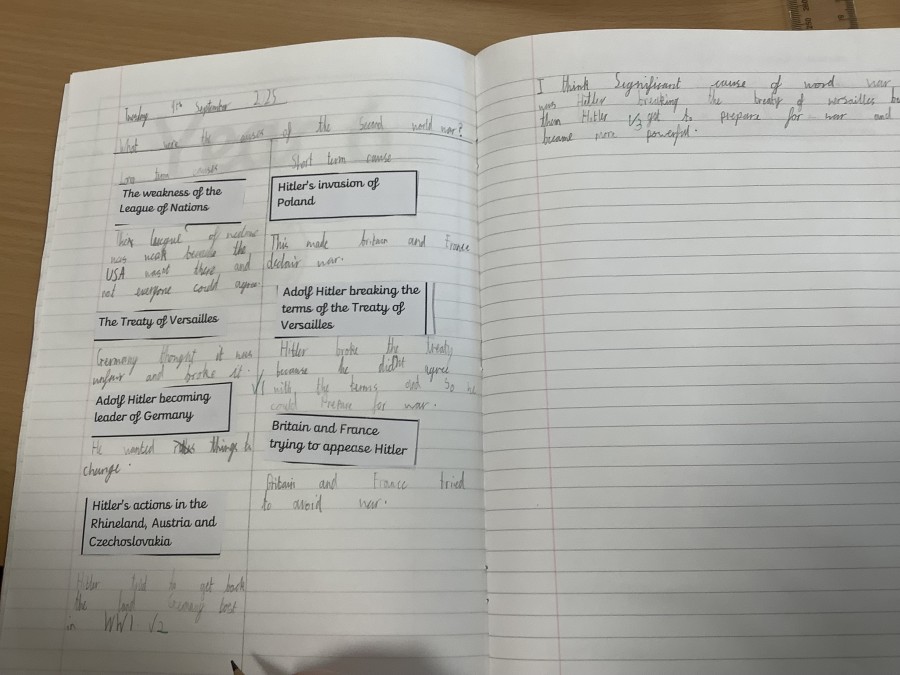 Tuesday 9th September 2025
What were the causes of the Second world war?
Long term causes
The weakness of the
League of Nations
league of
was weak because the
USA wasnt there and
not everyone could agree.
The Treaty of Versailles
Germany thought it was
unfair and broke it.
Adolf Hitler becoming
leader of Germany
He wanted things to
change.
Hitler's actions in the
Rhineland, Austria and
Czechoslovakia
Hitler tried to get back
the land Germany lost
in WW1 √2
Short term cause
Hitler's invasion of
Poland
This made britain and France
declair war.
Adolf Hitler breaking the
terms of the Treaty of
Versailles
Hitler broke the treaty
because he didnt agree
√1 with the terms and so he
could Prepare for war.
Britain and France
trying to appease Hitler
Britain and France tried
to avoid war.
I think Significant cause of word war
was Hitler breaking the treaty of versailles
then Hitler √3 get to prepare for war and
became more powerful.